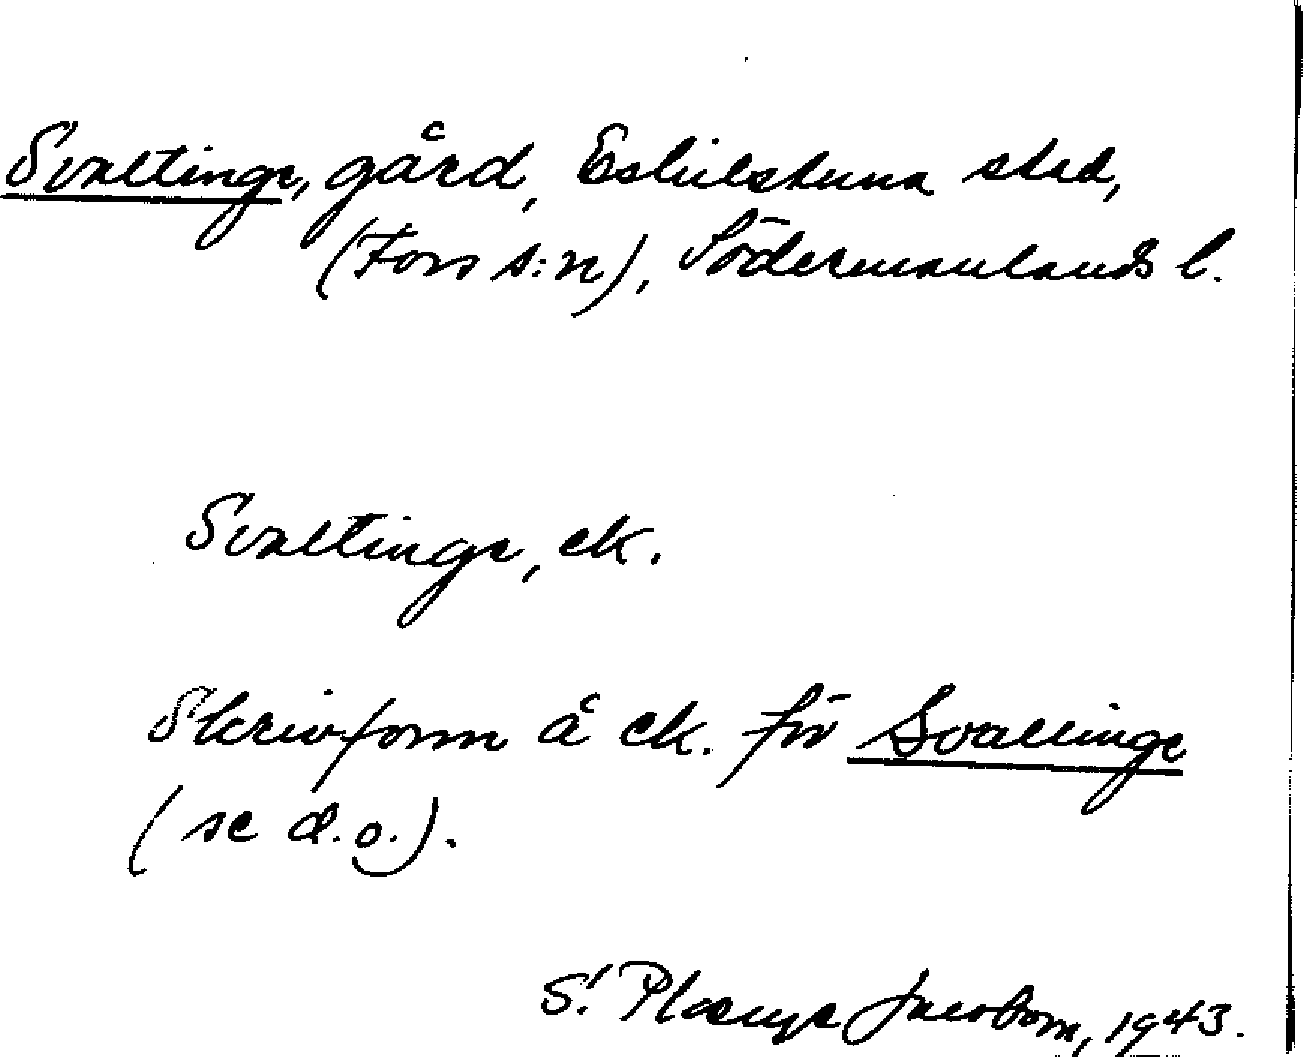 Svaltinge, gård, Eskilstuna stad,
(Fors s:n), Södermanlands l.
Svaltinge, ek.
Skrivform å ek. för Svallinge
(se d.o.).
S! Jacobson, 1943.